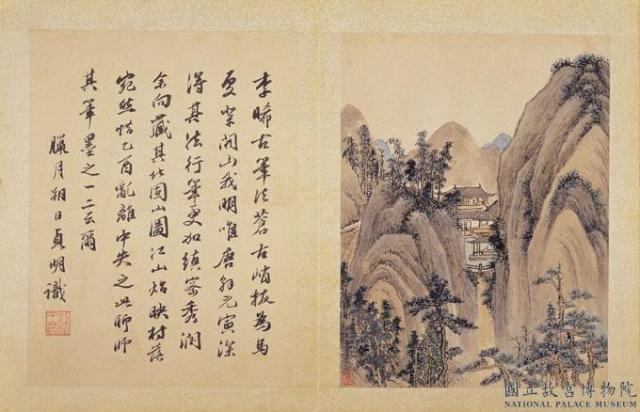 李晞古筆法蒼古峭拔為馬
夏開山我明唯唐解元寅深
得其法行筆更加縝密秀潤
余向藏其北固山圖江山炤映村落
宛然惜乙酉亂離中失之此聊師
其筆墨之一二云爾
臘月朔日貞明識
國立故宮博物院
NATIONAL PALACE MUSEUM